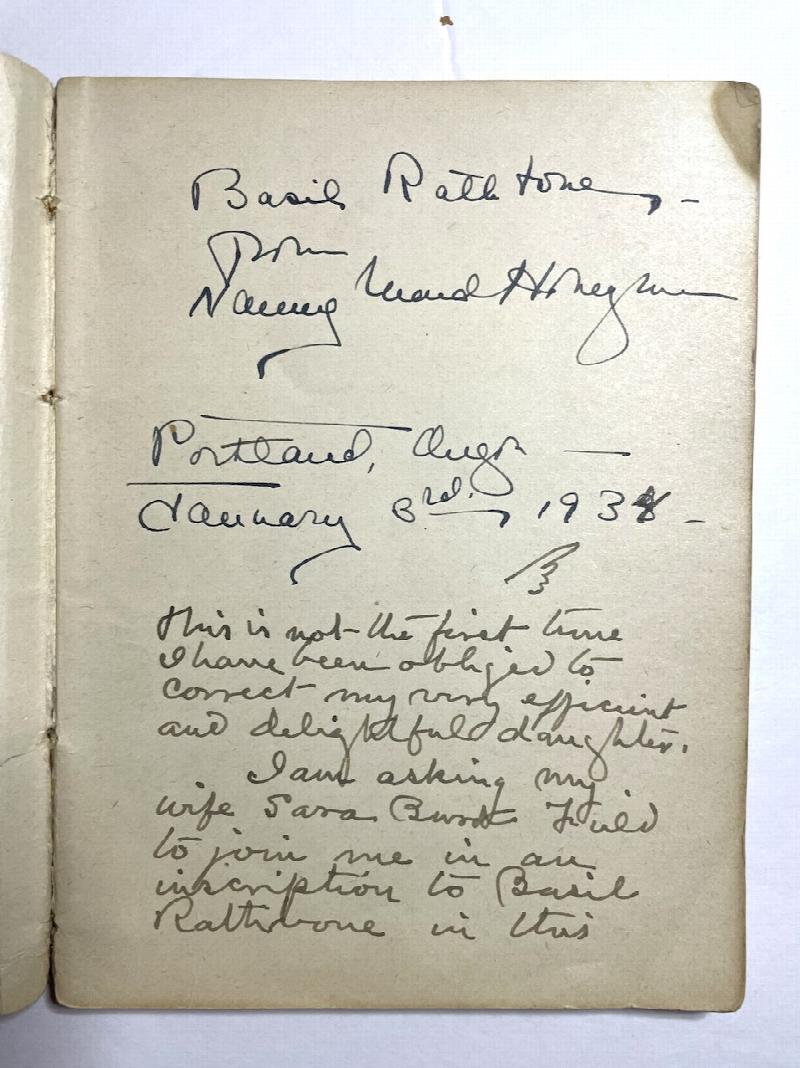 Basil Rathbone, -
from
Nanny Wood Honeyman
Portland, Oregon —
January 3rd, 1938 -
This is not the first time
I have been obliged to
correct my very efficient
and delightful daughter.
I am asking my
wife Sara Bard Field
to join me in an
inscription to Basil
Rathbone in this